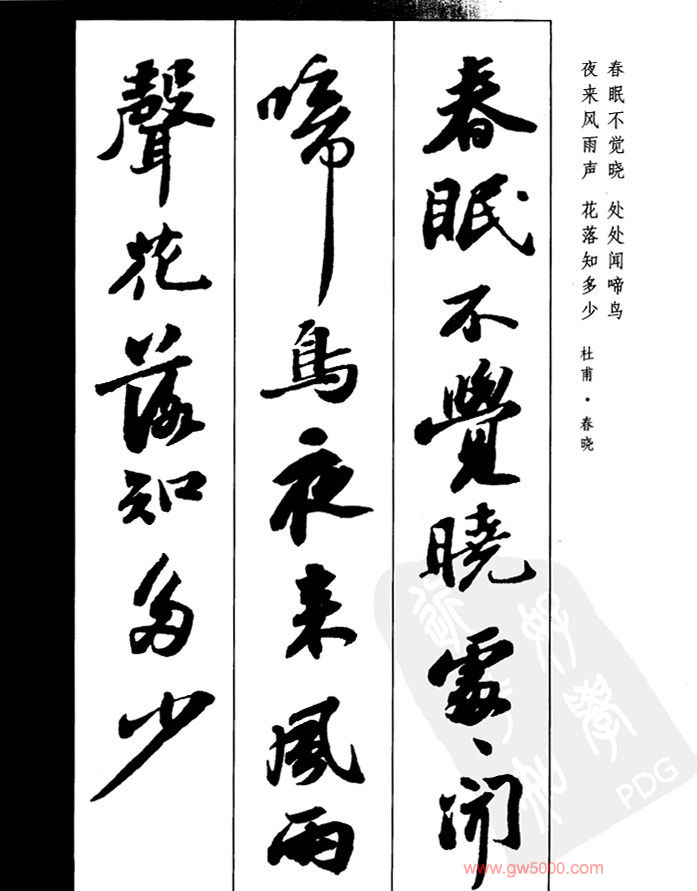 春眠不觉晓 处处闻啼鸟
夜来风雨声 花落知多少 杜甫·春晓
春眠不覺曉處、聞
啼鳥夜来風雨
聲花落知多少
PDG
www.gw5000.com